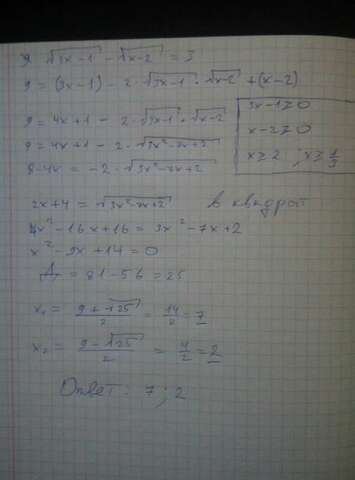 9 √3x-1 - √x-2 = 3
9 = (3x-1) - 2·√3x-1 · √x-2 + (x-2)
9 = 4x+1 - 2·√3x-1 · √x-2
3x-1≥0
9 = 4x+1 - 2·√3x²-7x+2
x-2≥0
8-4x = -2·√3x²-7x+2
x≥2 ; x≥1/3
2x+4 = √3x²-7x+2 в квадрат
4x²-16x+16 = 3x²-7x+2
x²-9x+14=0
Д = 81-56=25
x₁ = (9+√25)/2 = 14/2 = 7
x₂ = (9-√25)/2 = 4/2 = 2
Ответ: 7 ; 2